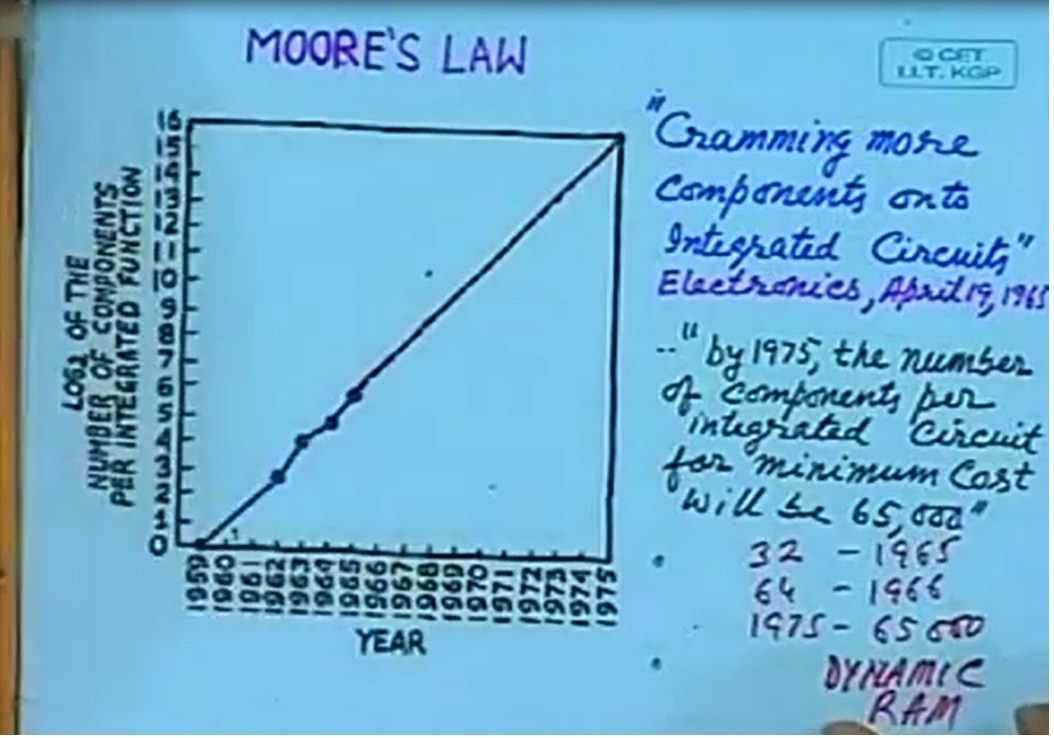 MOORE'S LAW
© CET
I.I.T. KGP
16
15
14
13
12
11
10
9
8
7
6
5
4
3
2
1
0
LOG2 OF THE
NUMBER OF COMPONENTS
PER INTEGRATED FUNCTION
1959
1960
1961
1962
1963
1964
1965
1966
1967
1968
1969
1970
1971
1972
1973
1974
1975
YEAR
"Cramming more
Components onto
Integrated Circuits"
Electronics, April 19, 1965
.."by 1975, the number
of components per
integrated circuit
for minimum Cost
will be 65,000"
32 - 1965
64 - 1966
1975 - 65000
DYNAMIC
RAM